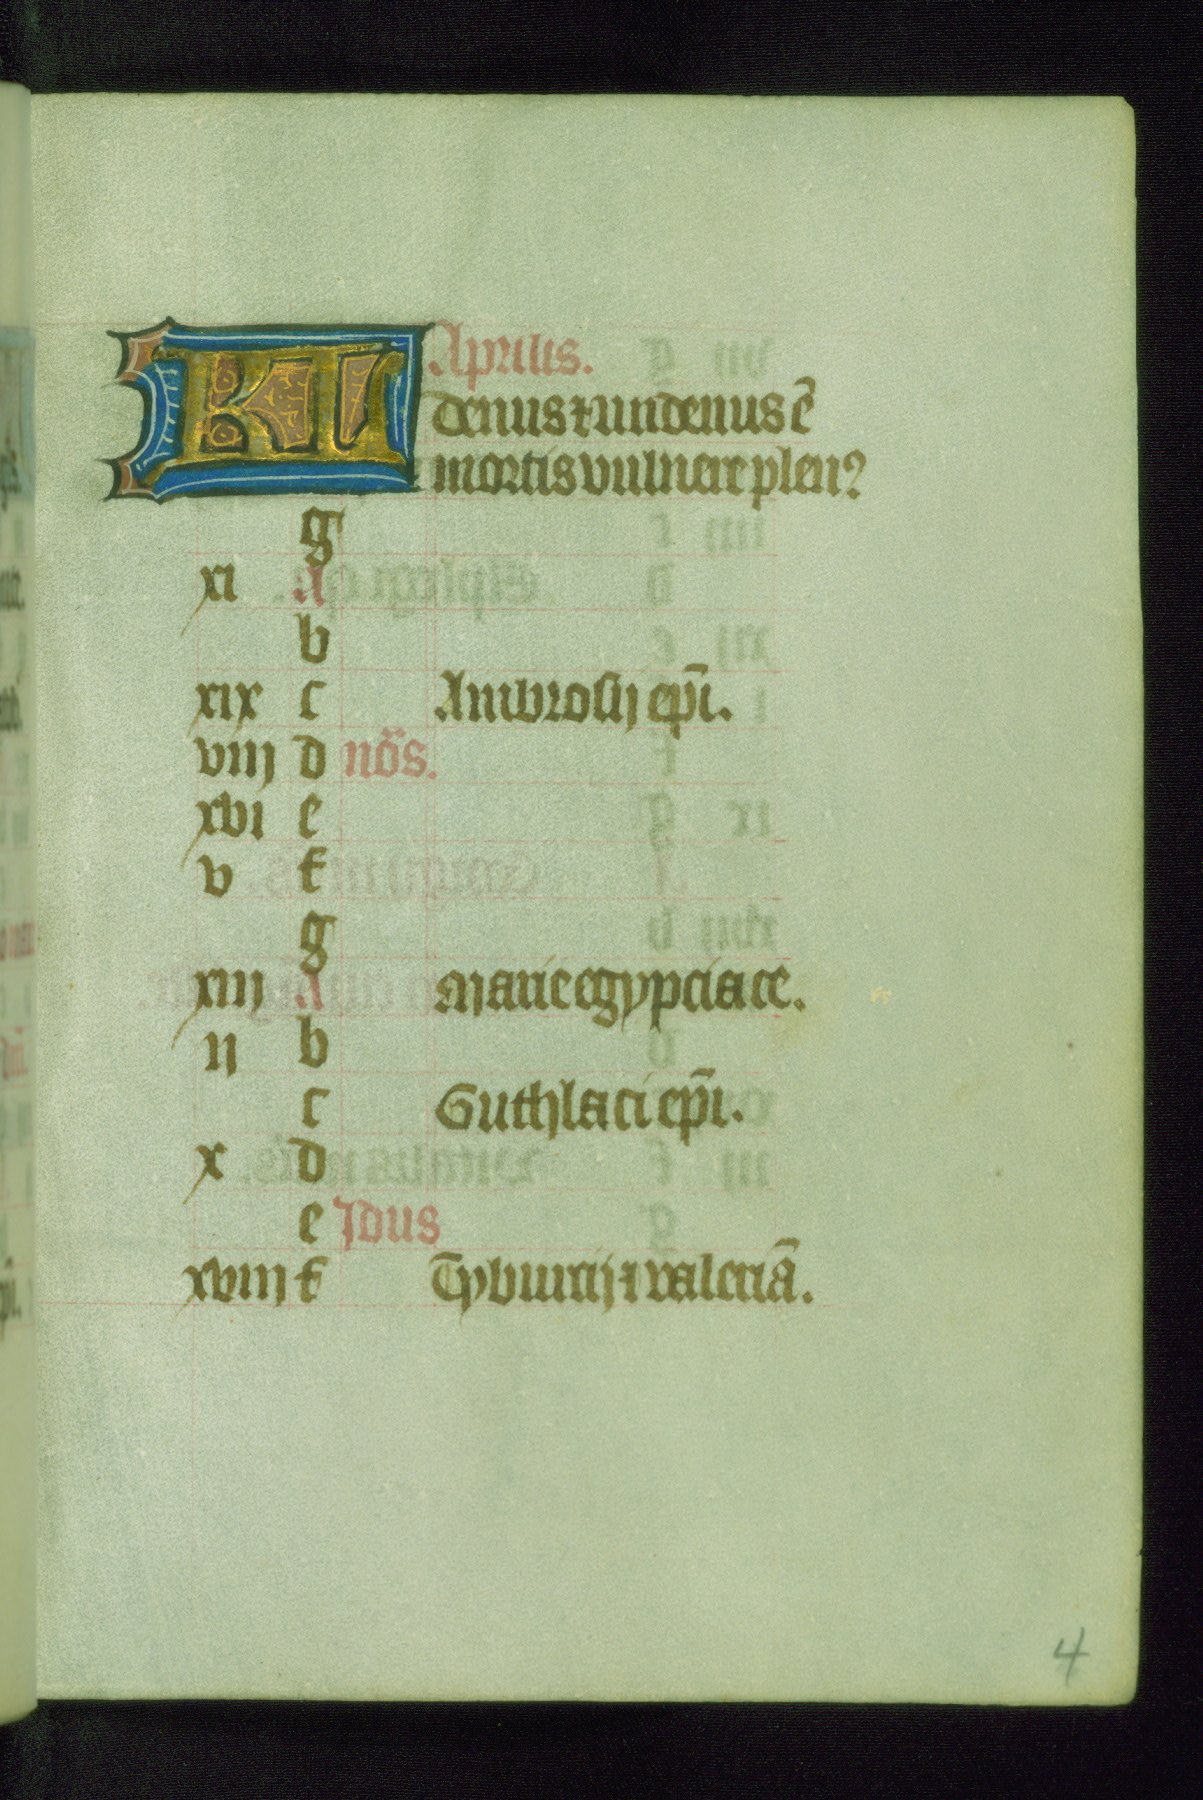 Kl Aprilis.
denus ⁊ undenus ē
mortis vulnere plen⁹
g
xi A
b
xix c Ambrosij ep̄i.
viii d no̅s.
xvi e
v f
g
xiii A Marie egypciace.
ii b
c Guthlaci ep̄i.
x d
e Idus
xviii f Tyburcij ⁊ valeriā.
4